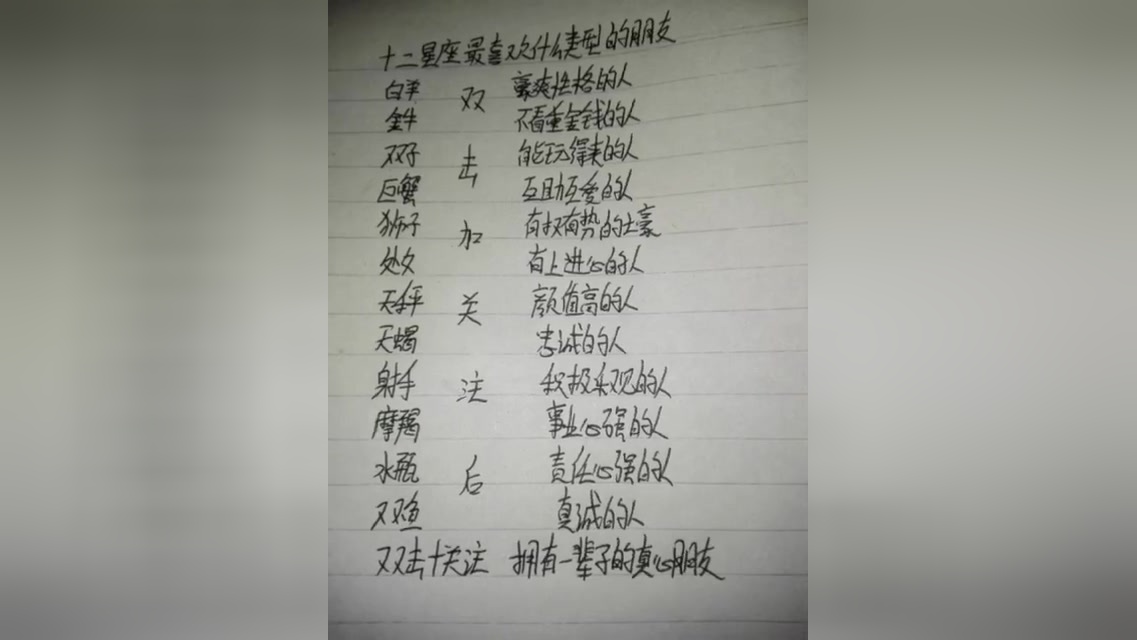 十二星座最喜欢什么类型的朋友
白羊 双 豪爽性格的人
金牛 不看重金钱的人
双子 击 能玩得来的人
巨蟹 互助互爱的人
狮子 加 有权有势的土豪
处女 有上进心的人
天秤 关 颜值高的人
天蝎 忠诚的人
射手 注 积极乐观的人
摩羯 事业心强的人
水瓶 后 责任心强的人
双鱼 真诚的人
双击+关注 拥有一辈子的真心朋友